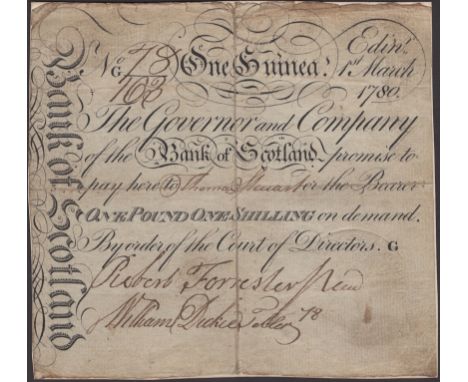 Bank of Scotland
No 78 One Guinea. Edinr.
G 163 1st March
1780.
The Governor and Company
of the Bank of Scotland promise to
pay here to Thomas Stuart or the Bearer
ONE POUND ONE SHILLING on demand.
By order of the Court of Directors. G
Robert Forrester
William Dickie Teller 78